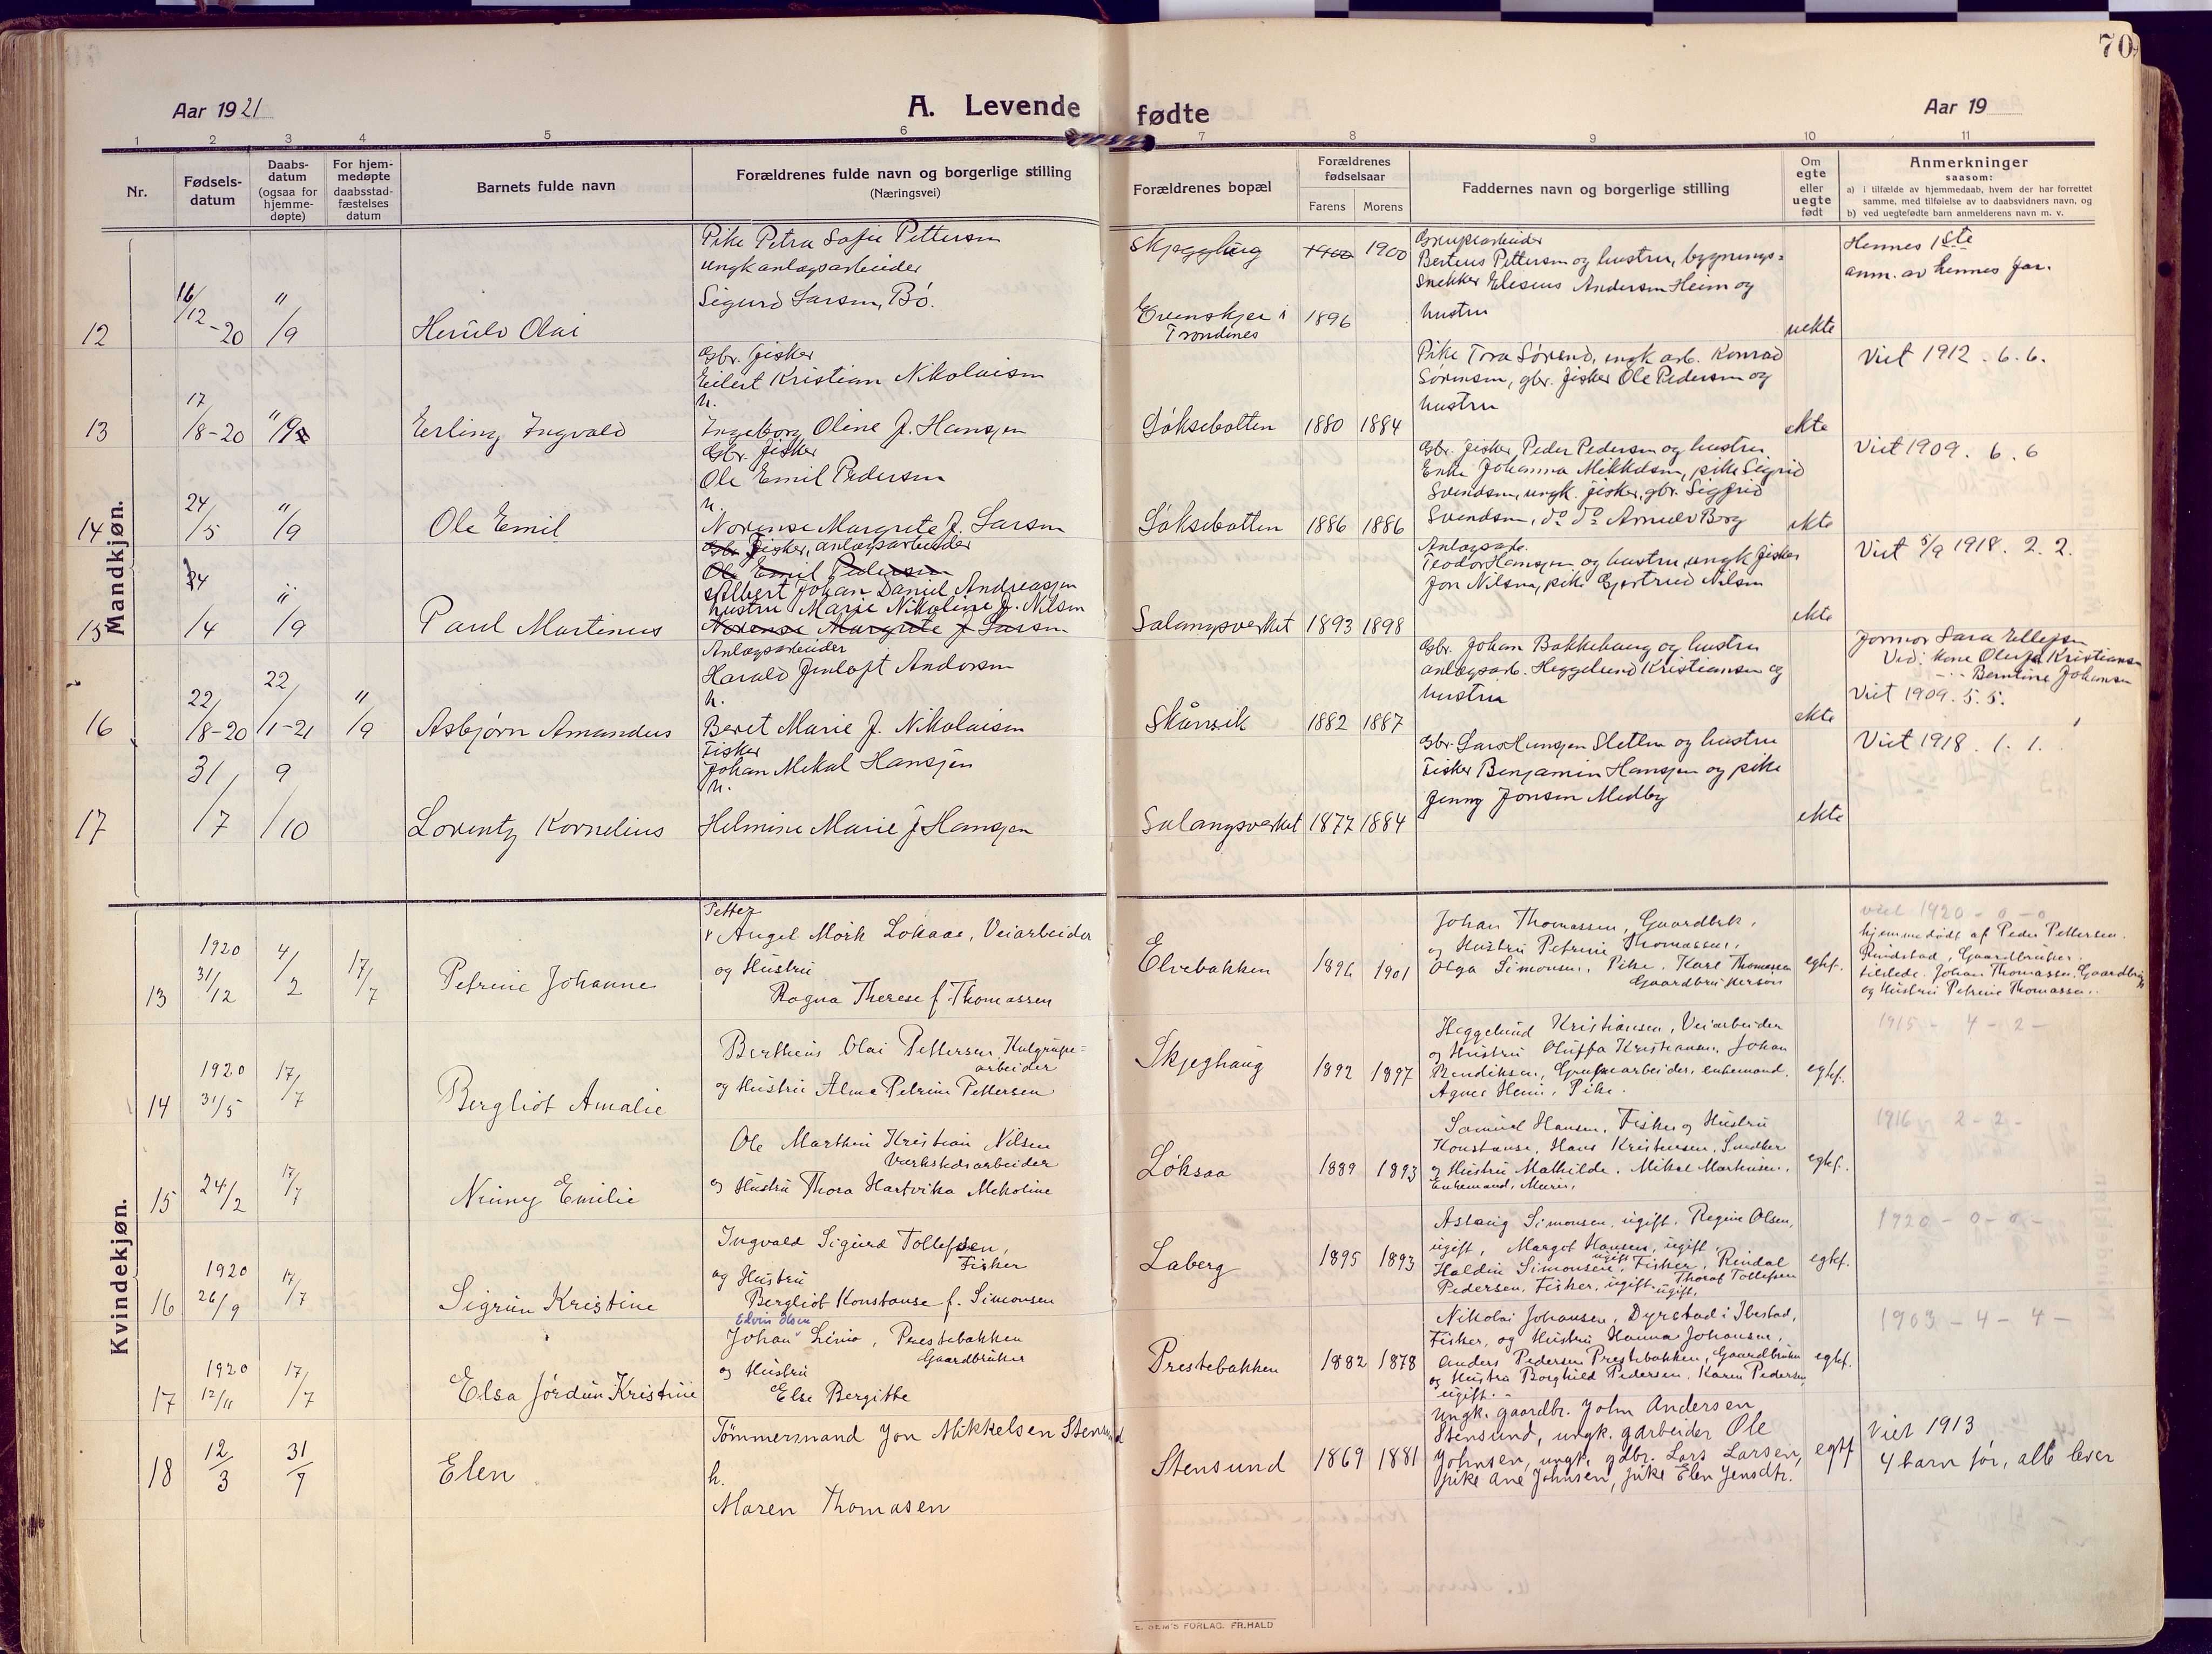 70
Aar 1921
A. Levende fødte
Aar 19
1 2 3 4 5 6 7 8 9 10 11
Nr.
Fødsels-
datum
Daabs-
datum
(ogsaa for
hjemme-
døpte)
For hjem-
medøpte
daabsstad-
fæstelses
datum
Barnets fulde navn
Forældrenes fulde navn og borgerlige stilling
(Næringsvei)
Forældrenes bopæl
Forældrenes
fødselsaar
Farens Morens
Faddernes navn og borgerlige stilling
Om
egte
eller
uegte
født
Anmerkninger
saasom:
a) i tilfælde av hjemmedaab, hvem der har forrettet
samme, med tilføielse av to daabsvidners navn, og
b) ved uegtefødte barn anmelderens navn m. v.
Mandkjøn.
12
16/12-20
"/9
Herulv Olai
Pike Petra Sofie Pettersen
ungk anlægsarbeider
Sigurd Larsen, Bö.
Skjægghaug
Evenskjer i
Trondenes
1900 1900
1896
Grubearbeider
Berteus Pettersen og hustru, bygnings-
snekker Eleseus Andersen Heim og
hustru
uekte
Hennes 1ste
anm. av hennes far.
13
17/8-20
"/9
Erling Ingvald
Gbr. fisker
Eilert Kristian Nikolaisen
h.
Ingeborg Oline f. Hansen
Løksebotten
1880 1884
Pike Tora Sørensd, ungk arb. Konrad
Sørensen, gbr. fisker Ole Pedersen og
hustru
ekte
Viet 1912. 6. 6.
14
24/5
"/9
Ole Emil
Gbr. fisker
Ole Emil Pedersen
h.
Norense Margrete f. Larsen
Løksebotten
1886 1886
Gbr. fisker Peder Pedersen og hustru
Enke Johanna Mikkelsen, pike Sigrid
Svendsen, ungk. fisker, gbr. Sigfrid
Svendsen, do do Arnulv Berg
ekte
Viet 1909. 6. 6
15
24/4
"/9
Paul Martinus
Gbr. fisker, anlægsarbeider
Ole Emil Pedersen
Albert Johan Daniel Andreassen
hustru Marie Nikoline f. Nilsen
Norense Margrete f Larsen
Salangsverket
1893 1898
Anlægsarb.
Teodor Hansen og hustru, ungk fisker
Jon Nilsen, pike Gjertrud Nilsen
ekte
Viet 5/9 1918. 2. 2.
16
22/8-20
22/1-21
"/9
Asbjørn Amandus
Anlægsarbeider
Harald Jentoft Andersen
h.
Beret Marie f. Nikolaisen
Skånvik
1882 1887
Gbr. Johan Bakkehaug og hustru
anlægsarb. Heggelund Kristiansen og
hustru
ekte
Farmor Sara Ellefsen
Vid: kone Olufa Kristiansen
-"- Berntine Johansen
Viet 1909. 5. 5.
17
31/7
9/10
Lorentz Kornelius
Fisker
Johan Mekal Hansen
h.
Helmine Marie f Hansen
Salangsverket
1877 1884
Gbr. Lars Hansen Sletten og hustru
Fisker Benjamin Hansen og pike
Jenny Jonsen Medby
ekte
Viet 1918. 1. 1.
Kvindekjøn.
13
1920
31/12
4/2
17/7
Petrine Johanne
Petter
Angel Mörk Loksaae, Veiarbeider
og Hustru
Ragna Therese f. Thomassen
Elvebakken
1896 1901
Johan Thomassen, Gaardbrk.
og Hustru Petrine Thomassen,
Olga Simonsen, Pike. Karl Thomassen
Gaardbrukersøn
egtf.
viet 1920 - 0 - 0
hjemmedøbt af Peder Pettersen.
Rundstad, Gaardbruker.
tilstede. Johan Thomassen, Gaardbruk
og Hustru Petrine Thomassen.
14
1920
31/5
17/7
Bergliot Amalie
Bertheus Olai Pettersen, Kulgrube-
arbeider
og Hustru Alma Petrine Pettersen
Skjeghaug
1892 1897
Heggelund Kristiansen, Veiarbeider
og Hustru Oluffa Kristiansen, Johan
Bendiksen, Grubearbeider, enkemand.
Agnes Heim, Pike.
egtf.
1915 - 4 - 2 -
15
24/2
17/7
Nanny Emilie
Ole Marthin Kristian Nilsen
Verkstedsarbeider
og Hustru Thora Hartvika Nikoline
Løksaa
1889 1893
Samuel Hansen, Fisker og Hustru
Konstanse, Hans Kristensen, Snedker
og Hustru Mathilde. Mikal Markusen,
Enkemand, Murer,
egtf.
1916 - 2 - 2 -
16
1920
26/9
17/7
Sigrun Kristine
Ingvald Sigurd Tollefsen,
Fisker
og Hustru
Bergliot Konstanse f. Simonsen
Laberg
1895 1893
Aslaug Simonsen, ugift. Regine Olsen,
ugift, Margot Hansen, ugift
Haldin Simonsen, ugift Fisker, Rindal
Pedersen, Fisker, ugift. Thoraf Tollefsen
ugift.
egtf.
1920 - 0 - 0 -
17
1920
12/11
17/7
Elsa Jórdun Kristine
Edvin Olsen
Johan Limo, Prestebakken
Gaardbruker
og Hustru
Else Bergitte
Prestebakken
1882 1878
Nikolai Johansen, Dyrstad i Ibestad,
Fisker, og Hustru Hanna Johansen,
Anders Pedersen Prestebakken, Gaardbruker
og Hustru Borghild Pedersen, Karen Pedersen,
ugift.
egtf.
1903 - 4 - 4 -
18
12/3
31/7
Elen
Tømmermand Jon Mikkelsen Stensund
h.
Maren Thomasen
Stensund
1869 1881
Ungk. gaardbr. John Andersen
Stensund, ungk. garbeider Ole
Johnsen, ungk. gdbr. Lars Larsen,
pike Ane Johnsen, pike Elen Jensdtr.
egtf
Viet 1913
4 barn før, alle lever
E. SEM'S FORLAG. FR.HALD